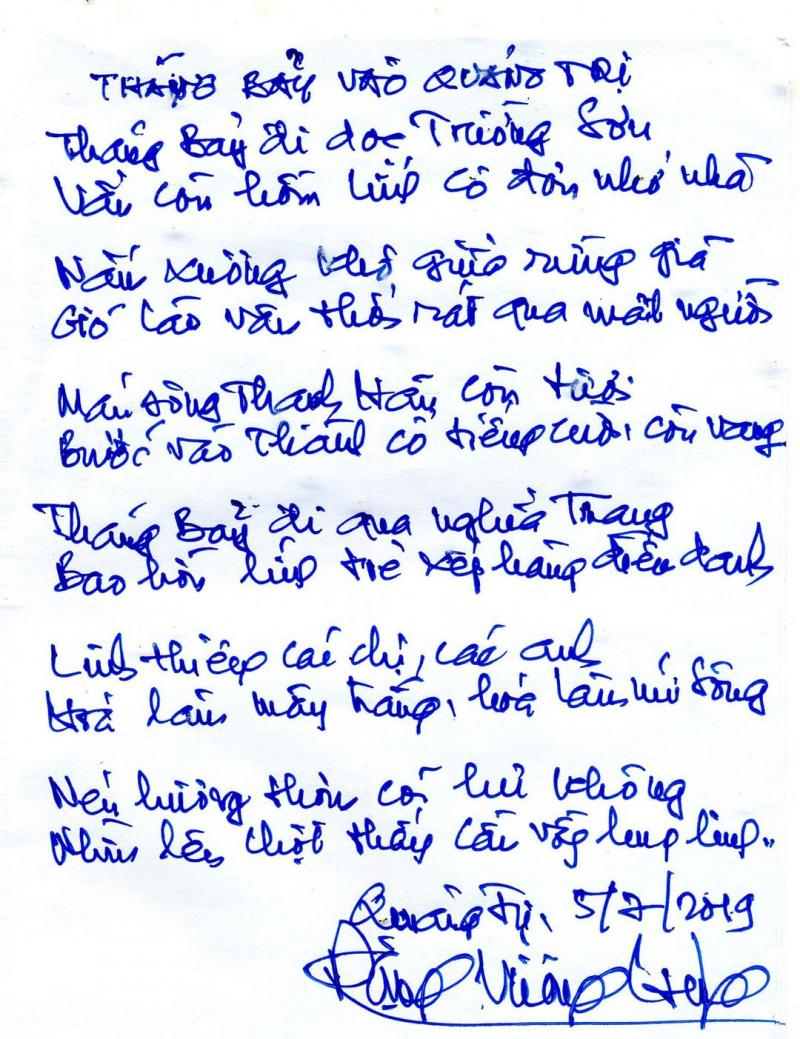 THÁNG BẢY VÀO QUẢNG TRỊ
Tháng Bảy đi dọc Trường Sơn
Vẫn còn hầm lính cô đơn nhớ nhà
Nấm xương khô giữa rừng già
Gió Lào vẫn thổi rát qua mặt người
Máu sông Thạch Hãn còn tươi
Bước vào Thành cổ tiếng cười còn vang
Tháng Bảy đi qua nghĩa Trang
Bao hồn lính trẻ xếp hàng điểm danh
Linh thiêng các chị, các anh
Hoá làm mây trắng, hoá làm núi sông
Nén hương thơm có hư không
Nhìn lên chợt thấy cầu vồng lung linh..
Quảng Trị, 5/7/2019